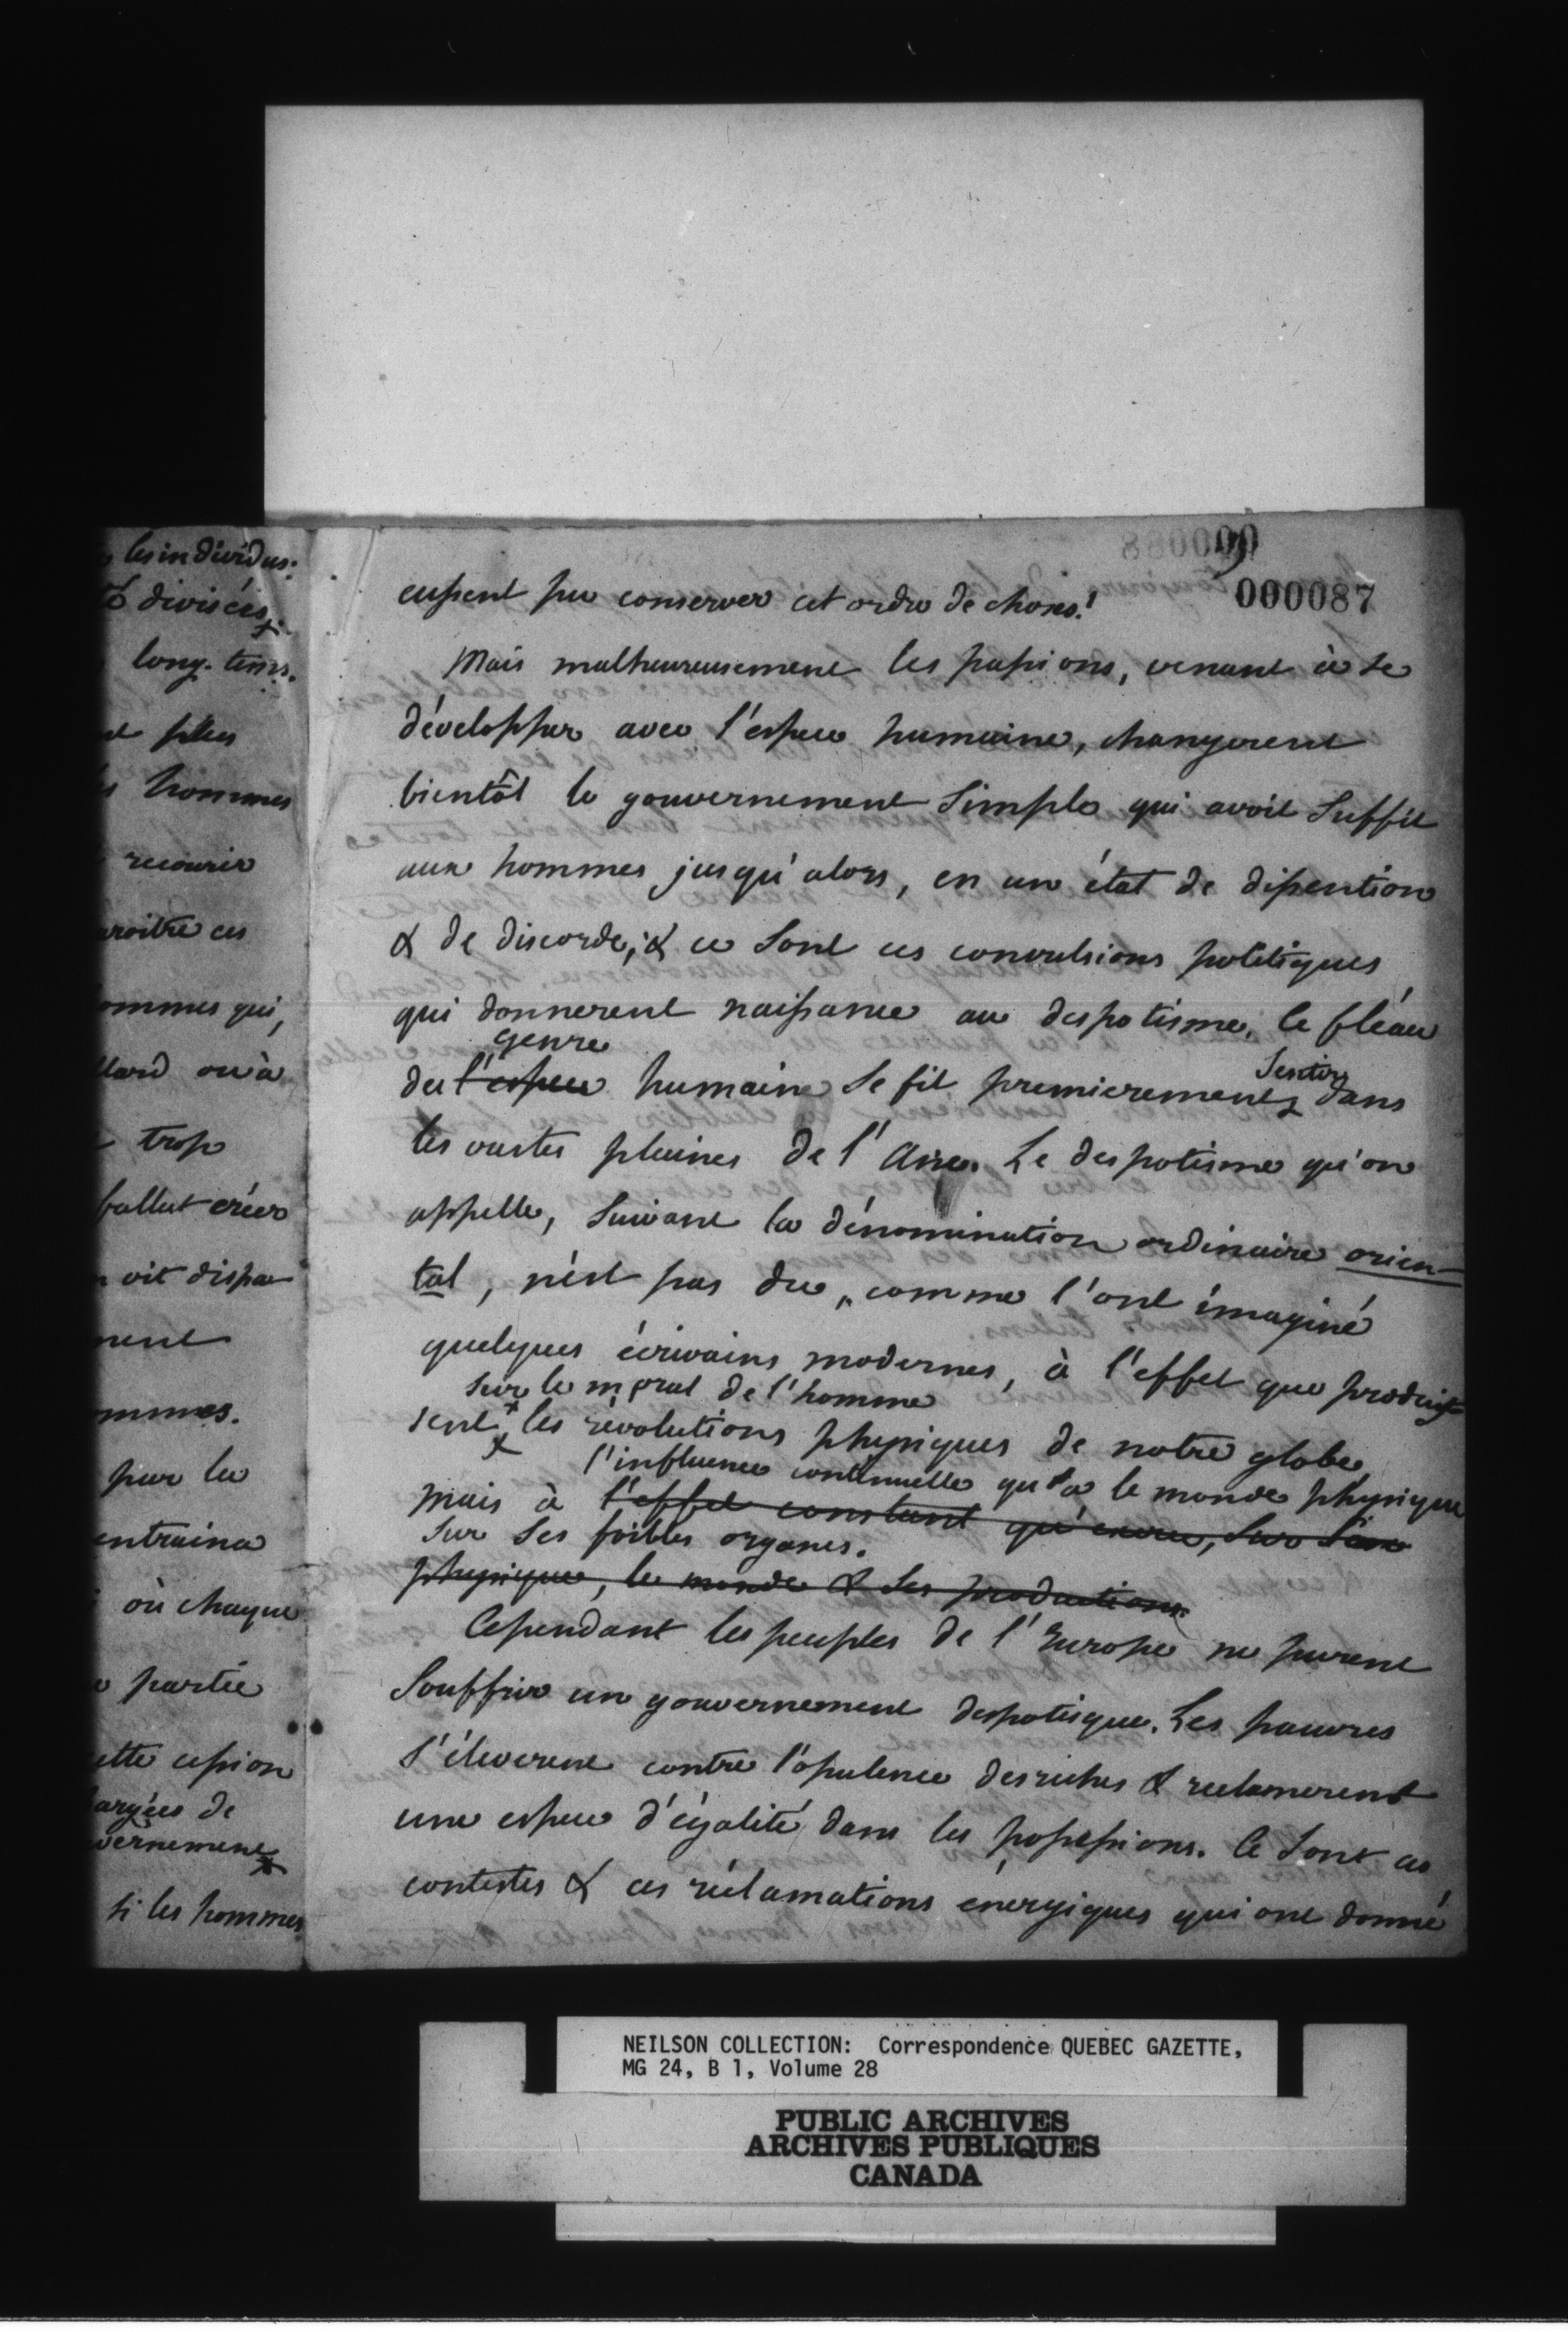 les individus:
divisées
long-tems.
plus
hommes
recourir
aroitre ces
ommes qui,
llard ou à
trop
fallut créer
vit dispa
ment
ommes.
par la
entraina
où chaque
partie
ette cession
argées de
vernement
si les hommes
000088
9
000087
eussent pu conserver cet ordre de choses!
Mais malheureusement les passions, venant à se
développer avec l'espece humaine, changerent
bientôt le gouvernement Simple qui avoit Suffit
aux hommes jusqu'alors, en un état de dissention
& de discorde; & ce Sont ces convulsions politiques
qui donnerent naissance au despotisme. le fléau
genre
du l'espece humaine Se fit premierement dans
Sentir
les vastes plaines de l'Asie. Le despotisme qu'on
appelle, Suivant la dénomination ordinaire orien-
tal, n'est pas du, comme l'ont imaginé
quelques écrivains modernes, à l'effet que produi-
sur le moral de l'homme
sent les révolutions physiques de notre globe
l'influence continuelle qu'a le monde physique
mais à l'effet constant qu'exerce, Sur Son
sur Ses foibles organes.
physique, le monde & Ses productions.
Cependant les peuples de l'Europe ne purent
Souffrir un gouvernement despotique. Les pauvres
S'éleverent contre l'opulence des riches & reclamerent
une espece d'égalité dans les possessions. Ce Sont ces
contestes & ces réclamations énergiques qui ont donné
NEILSON COLLECTION: Correspondence QUEBEC GAZETTE,
MG 24, B 1, Volume 28
PUBLIC ARCHIVES
ARCHIVES PUBLIQUES
CANADA